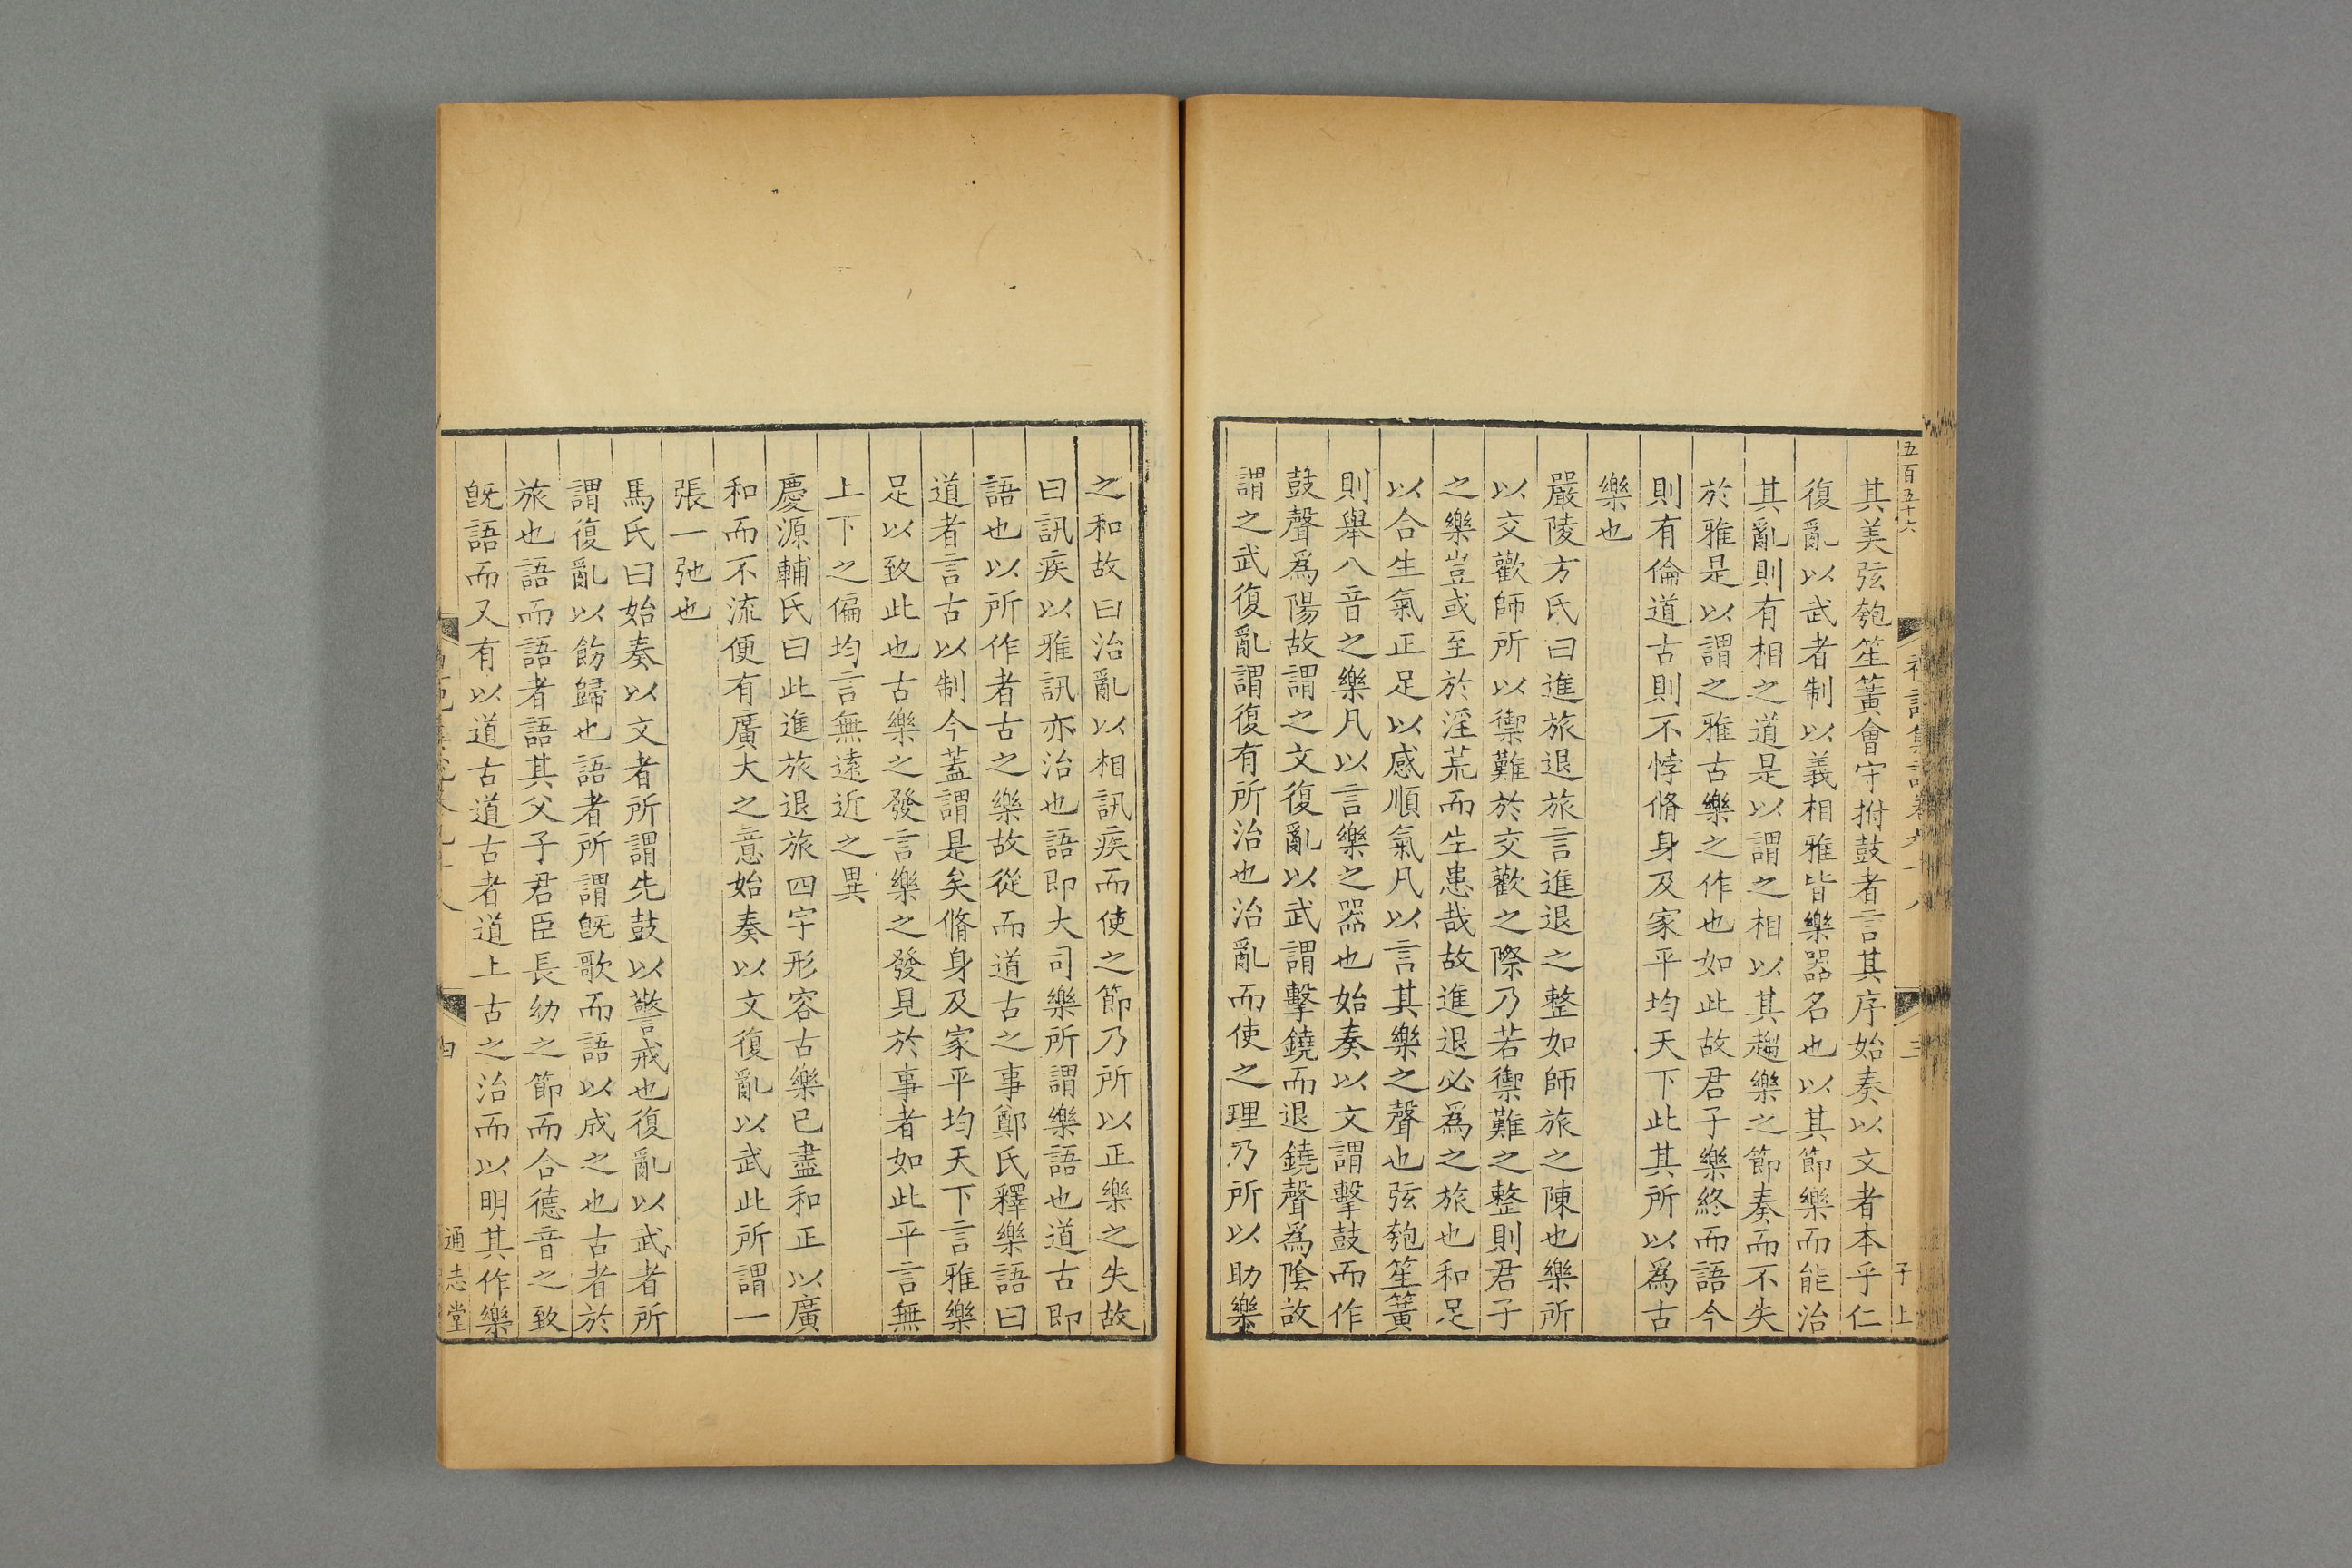 五百五十六
禮記集說卷九十八
三
子上
其美弦匏笙簧會守拊鼓者言其序始奏以文者本乎仁
復亂以武者制以義相雅皆樂器名也以其節樂而能治
其亂則有相之道是以謂之相以其趨樂之節奏而不失
於雅是以謂之雅古樂之作也如此故君子樂終而語今
則有倫道古則不悖脩身及家平均天下此其所以為古
樂也
嚴陵方氏曰進旅退旅言進退之整如師旅之陳也樂所
以交歡師所以禦難於交歡之際乃若禦難之整則君子
之樂豈或至於淫荒而生患哉故進退必為之旅也和足
以合生氣正足以感順氣凡以言其樂之聲也弦匏笙簧
則舉八音之樂凡以言樂之器也始奏以文謂擊鼓而作
鼓聲為陽故謂之文復亂以武謂擊鐃而退鐃聲為陰故
謂之武復亂謂復有所治也治亂而使之理乃所以助樂
之和故曰治亂以相訊疾而使之節乃所以正樂之失故
曰訊疾以雅訊亦治也語即大司樂所謂樂語也道古即
語也以所作者古之樂故從而道古之事鄭氏釋樂語曰
道者言古以制今蓋謂是矣脩身及家平均天下言雅樂
足以致此也古樂之發言樂之發見於事者如此平言無
上下之偏均言無遠近之異
慶源輔氏曰此進旅退旅四字形容古樂已盡和正以廣
和而不流便有廣大之意始奏以文復亂以武此所謂一
張一弛也
馬氏曰始奏以文者所謂先鼓以警戒也復亂以武者所
謂復亂以飭歸也語者所謂既歌而語以成之也古者於
旅也語而語者語其父子君臣長幼之節而合德音之致
既語而又有以道古道古者道上古之治而以明其作樂
通志堂